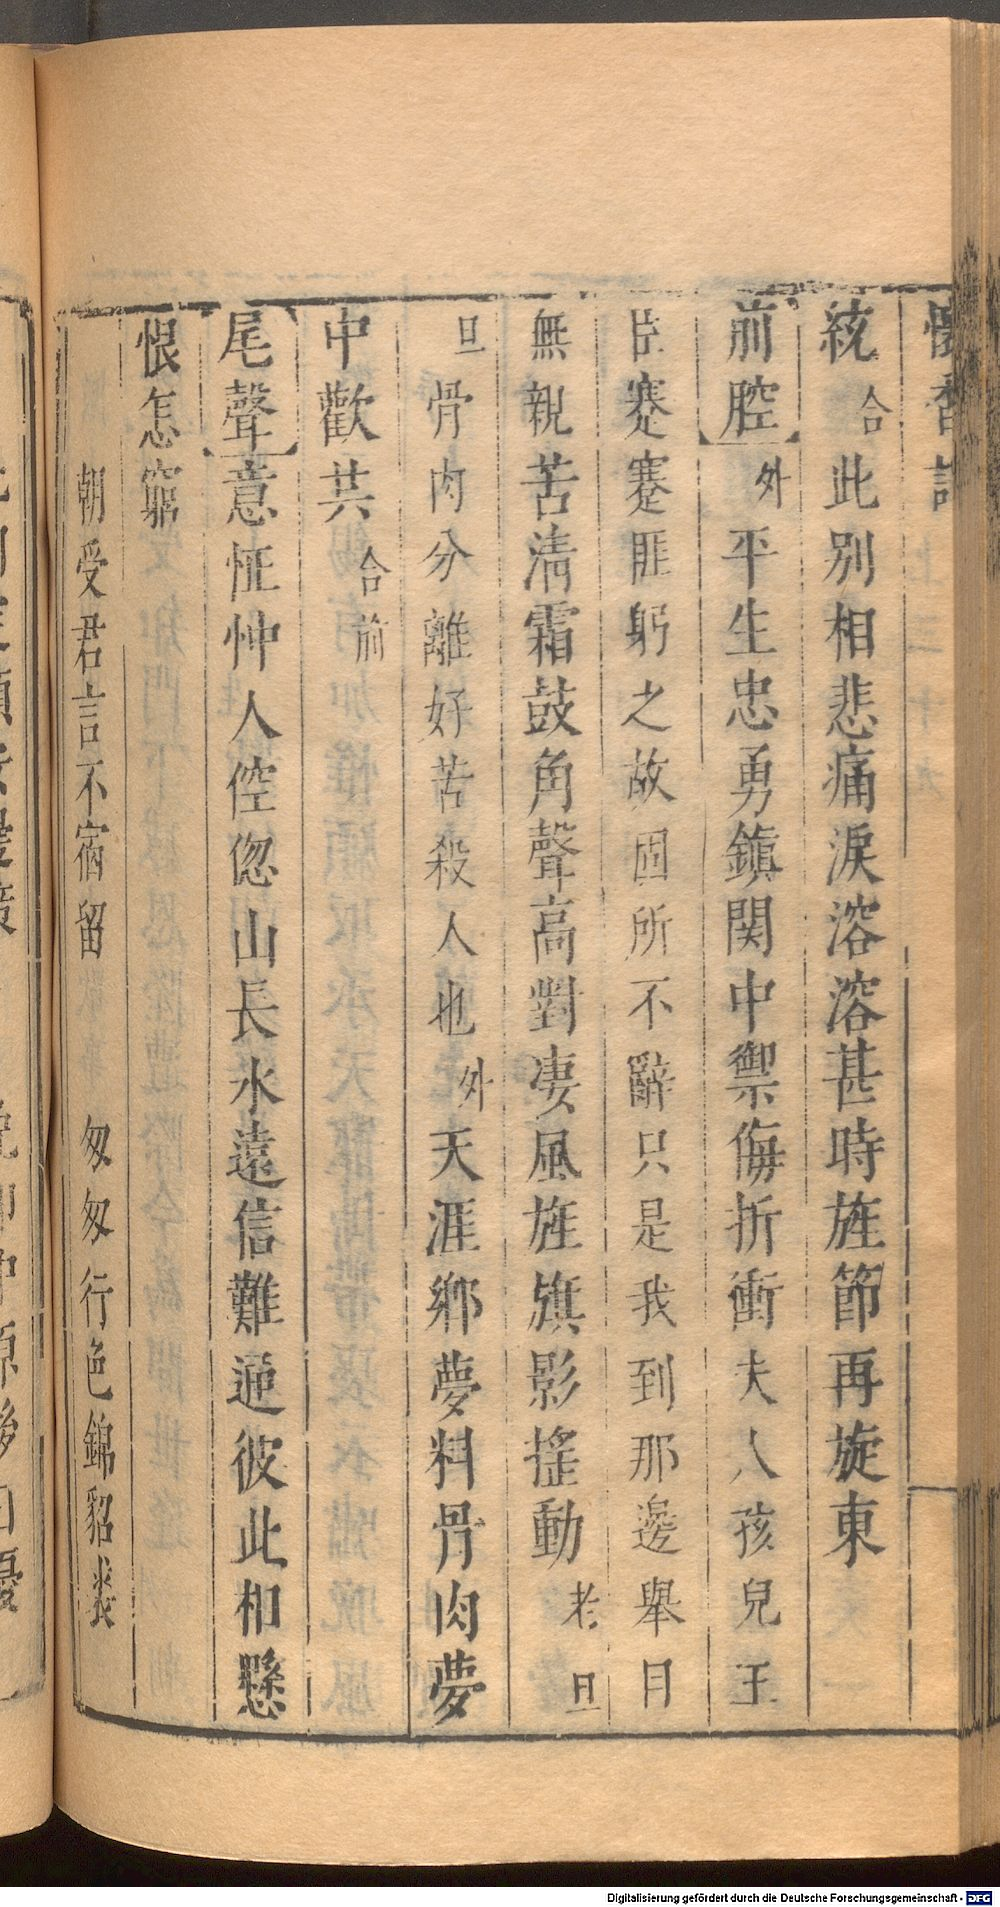 懷香記
統合此別相悲痛淚溶溶甚時旌節再旋東
前腔外平生忠勇鎮関中禦侮折衝夫人孩兒王
臣蹇蹇匪躬之故固所不辭只是我到那邊舉目
無親苦清霜鼓角聲高對凄風旌旗影搖動老旦
旦骨肉分離好苦殺人也外天涯鄉夢料骨肉夢
中歡共合前
尾聲意怔忡人倥偬山長水遠信難通彼此相懸
恨怎窮
朝受君言不宿留　匆匆行色錦貂裘
Digitalisierung gefördert durch die Deutsche Forschungsgemeinschaft - DFG